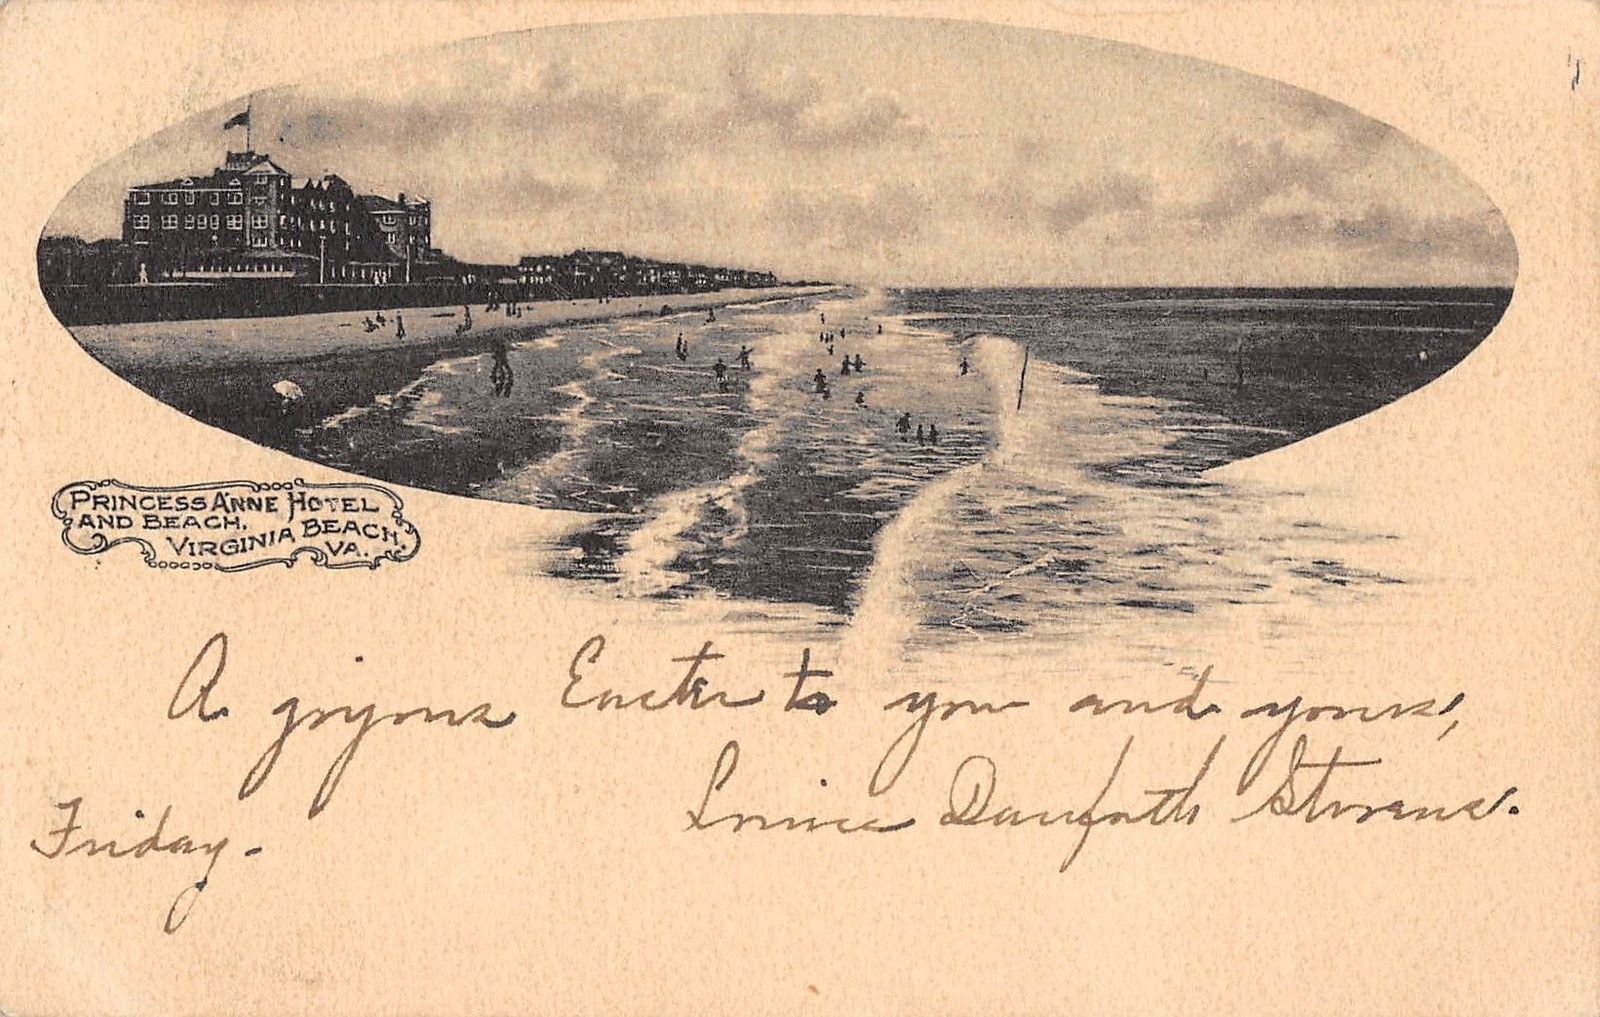 PRINCESS ANNE HOTEL
AND BEACH,
VIRGINIA BEACH,
VA.
A joyous Easter to you and yours,
Louise Danforth Stevens.
Friday.